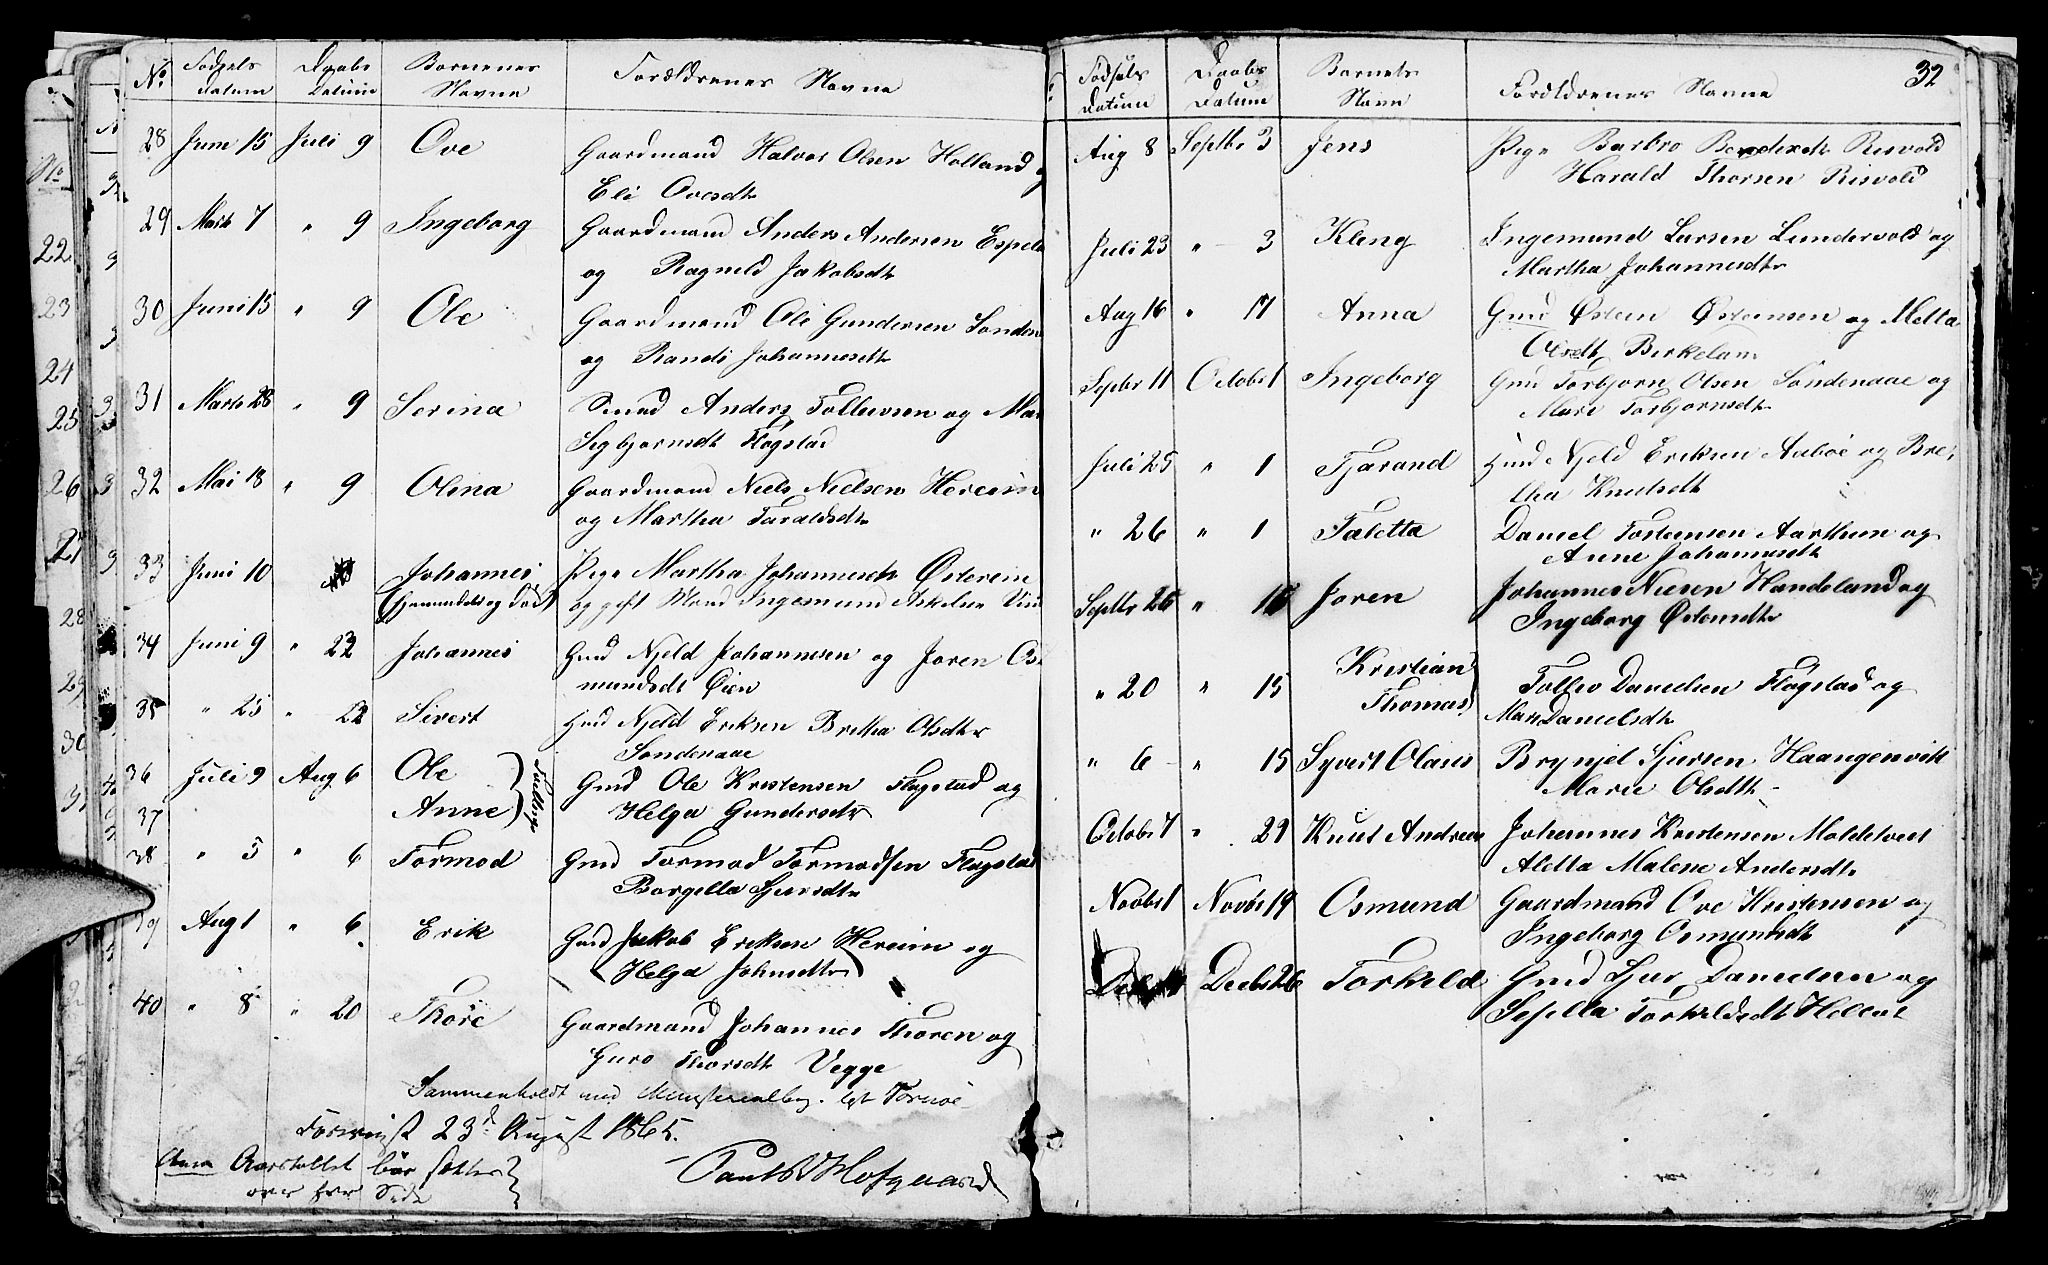 No Fødsels Datum Daabs Datum Børnenes Navne Forældrenes Navne
28 Juni 15 Juli 9 Ove Gaardmand Halvor Olsen Holland
Eli Ovesdt
29 Marts 7 " 9 Ingeborg Gaardmand Anders Andersen Espela
og Ragneld Jakobsdt
30 Juni 15 " 9 Ole Gaardmand Ole Gundersen Sonden
og Randi Johannesdt
31 Marts 28 " 9 Serina Smed Anders Tollevsen og Mar
Sigbjornsdt Flogstad
32 Mai 18 " 9 Olina Gaardmand Niels Nielsen Hereim
og Martha Taraldsdt
33 Juni 10 Johannes Pige Martha Johannesdt Østerein
(Hjemmedøbt og død) og gift Mand Ingemund Askelsen
34 Juni 9 " 22 Johannes Gmd Njeld Johannesen og Joren Os
mundsdt Øien
35 " 25 " 22 Sivert Gmd Njeld Eriksen Bretha Olsdt
Sondenaae
36 Juli 9 Aug 6 Ole Gmd Ole Kristensen Flogstad og
37 Anne Tvillinge Helga Gundersdt
38 " 5 " 6 Tormod Gmd Tormod Tormodsen Flogstad
Borgella Sjursdt
39 Aug 1 " 6 Erik Gmd Jakob Eriksen Hereim og
Helga Johnsdt
40 " 8 " 20 Thore Gaardmand Johannes Thoren og
Guro Thorsdt Vegge
Sammenholdt med Ministerialbog.
23d August 1865.
Aarstallet bör settes
over hver Side
32
Fødsels Datum Daabs Datum Barnets Navn Forældrenes Navne
Aug 8 Septbr 3 Jens Pige Barbro Bendixdt Risvold
Harald Thorsen Risvold
Juli 23 " 3 Kleng Ingemund Larsen Lundervold og
Martha Johannesdt
Aug 16 " 17 Anna Gmd Østein Østensen og Metta
Olsdt Birkeland
Septbr 11 Octobr 1 Ingeborg Gmd Torbjorn Olsen Sondenaae og
Mari Torbjornsdt
Juli 25 " 1 Tjarand Hmd Njeld Eriksen Aaboe og Bre,
tha Knudsdt
" 26 " 1 Taletta Daniel Torstensen Aarthun og
Anne Johannesdt
Septbr 25 " 15 Joren Johannes Nielsen Handeland og
Ingeborg Østensdt
" 20 " 15 Kristian Thomas Tollev Danielsen Flogstad og
Mari Danielsdt
" 6 " 15 Syvert Olaus Brynjel Sjursen Haangenvik
Marie Olsdt
Octobr 7 " 29 Knut Andreas Johannes Kristensen Moldetvedt
Aletta Malene Andersdt
Novbr 1 Novbr 19 Osmund Gaardmand Ove Kristensen og
Ingeborg Osmundsdt
Decbr 26 Torkeld Gmd Sjur Danielsen og
Sesella Torkeldsdt